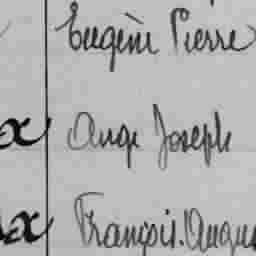 Eugène Pierre
x Ange Joseph
x François. Augus